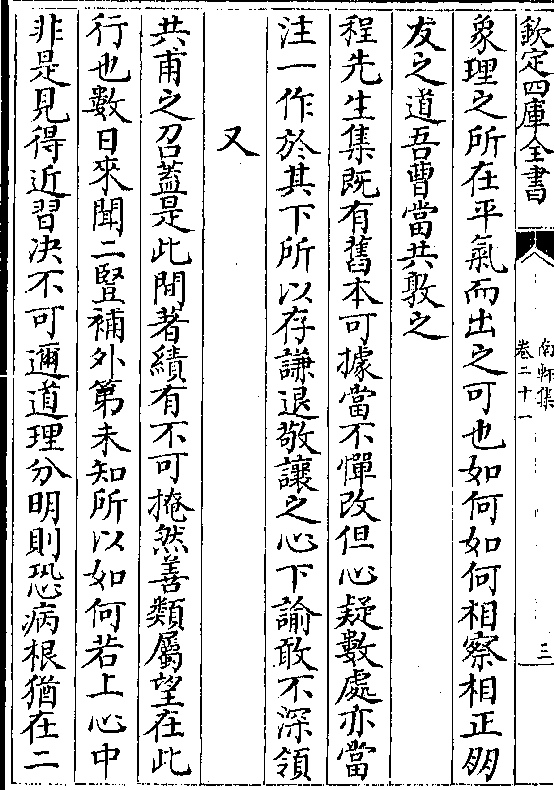 欽定四庫全書
南軒集
卷二十一
三
象理之所在平氣而出之可也如何如何相察相正朋
友之道吾曹當共敦之
程先生集旣有舊本可據當不憚改但心疑數處亦當
注一作於其下所以存謙退敬讓之心下諭敢不深領
又
共甫之召蓋是此間著績有不可掩然善類屬望在此
行也數日來聞二豎補外第未知所以如何若上心中
非是見得近習決不可邇道理分明則恐病根猶在二